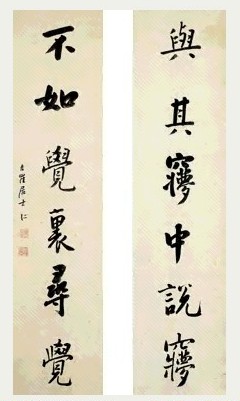 與其㝱中說㝱
不如覺裏尋覺
居士仁